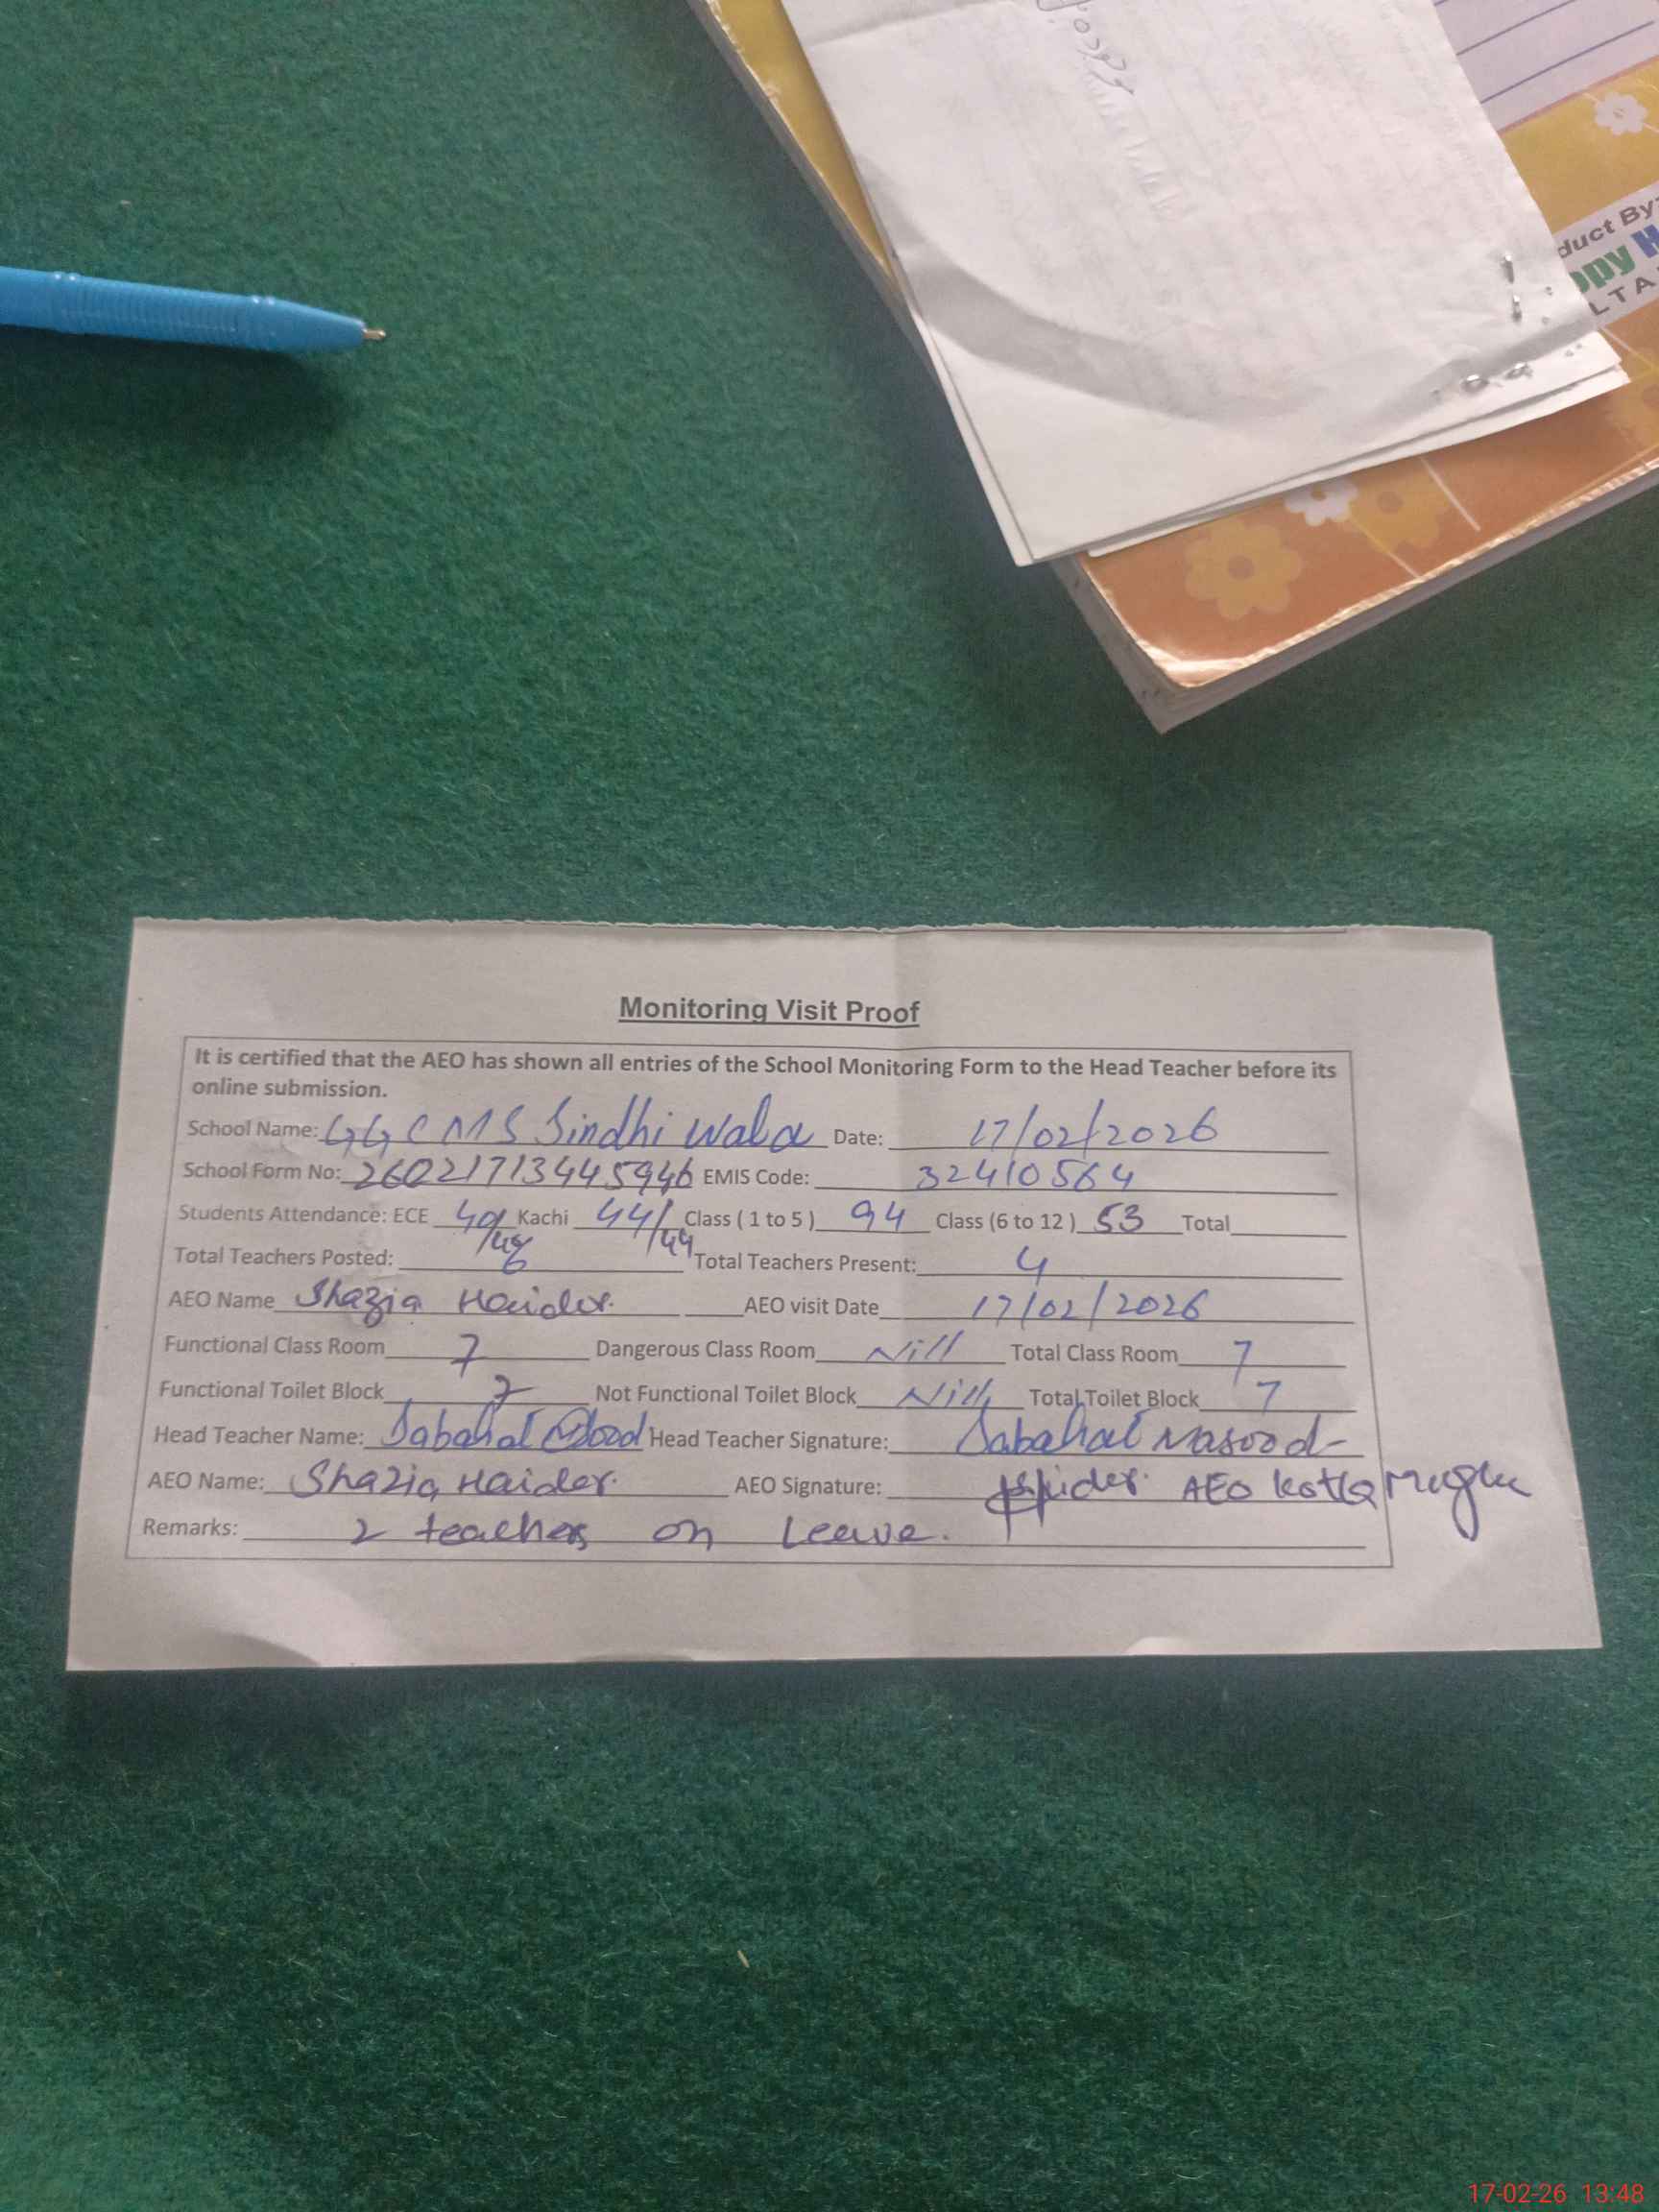 duct By:
ppy H
LTA
Monitoring Visit Proof
It is certified that the AEO has shown all entries of the School Monitoring Form to the Head Teacher before its
online submission.
School Name: GGCMS Sindhi Wala Date: 17/02/2026
School Form No: 26021713445946 EMIS Code: 32410564
Students Attendance: ECE 40/48 Kachi 44/49 Class ( 1 to 5 ) 94 Class (6 to 12 ) 53 Total
Total Teachers Posted: 6 Total Teachers Present: 4
AEO Name Shazia Haider. AEO visit Date 17/02/2026
Functional Class Room 7 Dangerous Class Room Nill Total Class Room 7
Functional Toilet Block 7 Not Functional Toilet Block Nill Total Toilet Block 7
Head Teacher Name: Sabahat Head Teacher Signature: Sabahat Masood
AEO Name: Shazia Haider. AEO Signature: AEO Kotla Mughla
Remarks: 2 teachers on Leave.
17-02-26 13:48